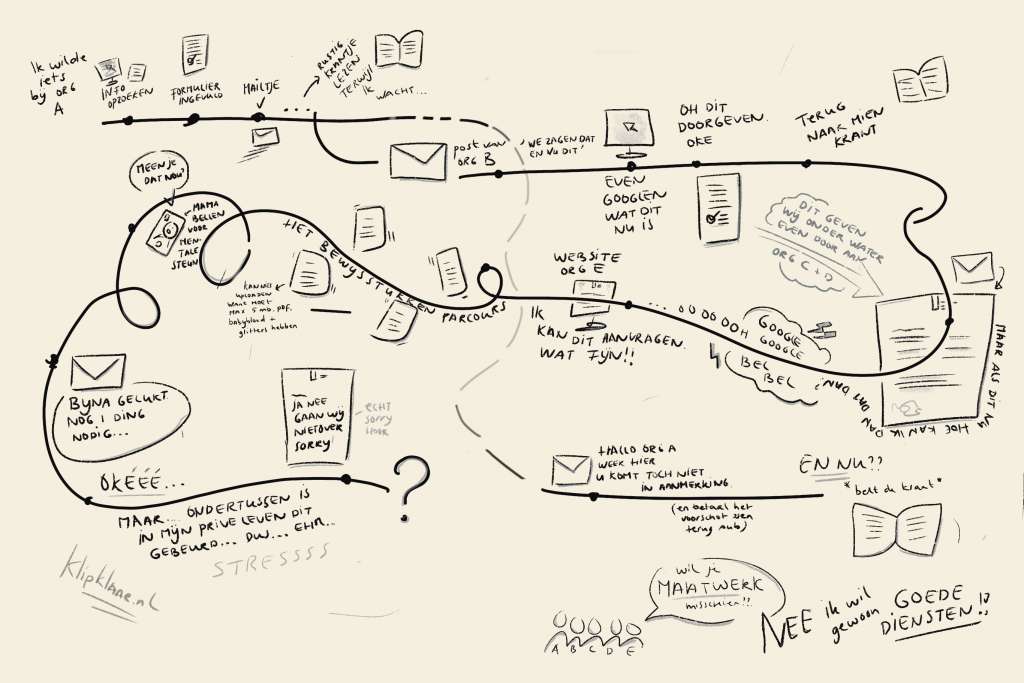 Ik wilde
iets
by ORG
A
INFO
OPZOEKEN
FORMULIER
INGEVULD
MAILTJE
...
RUSTIG
KRANTJE
LEZEN
TERWIJL
IK
WACHT...
post van
ORG B
'WE ZAGEN DAT
EN NU DIT'
EVEN
GOOGLEN
WAT DIT
NU IS
OH DIT
DOORGEVEN.
OKE
TERUG
NAAR MIJN
KRANT
DIT GEVEN
WIJ ONDER WATER
EVEN DOOR AAN
ORG C + D
MAAR ALS DIT NU
HOE KAN IK DAN
DAT DAN?
GOOGLE
GOOGLE
BEL
BEL
... OOOOOOH
WEBSITE
ORG E
IK
KAN DIT AANVRAGEN.
WAT FIJN!!
HET BEWIJSSTUKKEN PARCOURS
KAN NIET
UPLOADEN
WANT MOET
MAX 5 mb. pdf.
babyblauw +
glitters hebben
MEEN JE
DAT NOU?
MAMA
BELLEN
VOOR
MEN-
TALE
STEUN
BYNA GELUKT
NOG 1 DING
NODIG...
OKÉÉÉ...
MAAR... ONDERTUSSEN IS
IN MIJN PRIVE LEVEN DIT
GEBEURD... DUS... EHM..
STRESSSS
JA NEE
GAAN WIJ
NIET OVER
SORRY
echt
sorry
hoor
?
HALLO ORG A
WEER HIER
U KOMT TOCH NIET
IN AANMERKING.
(en betaal het
voorschot even
terug aub)
EN NU??
*belt de krant*
wil je
MAATWERK
misschien?!
A B C D E
NEE ik wil
gewoon GOEDE
DIENSTEN!!
klipklaar.nl